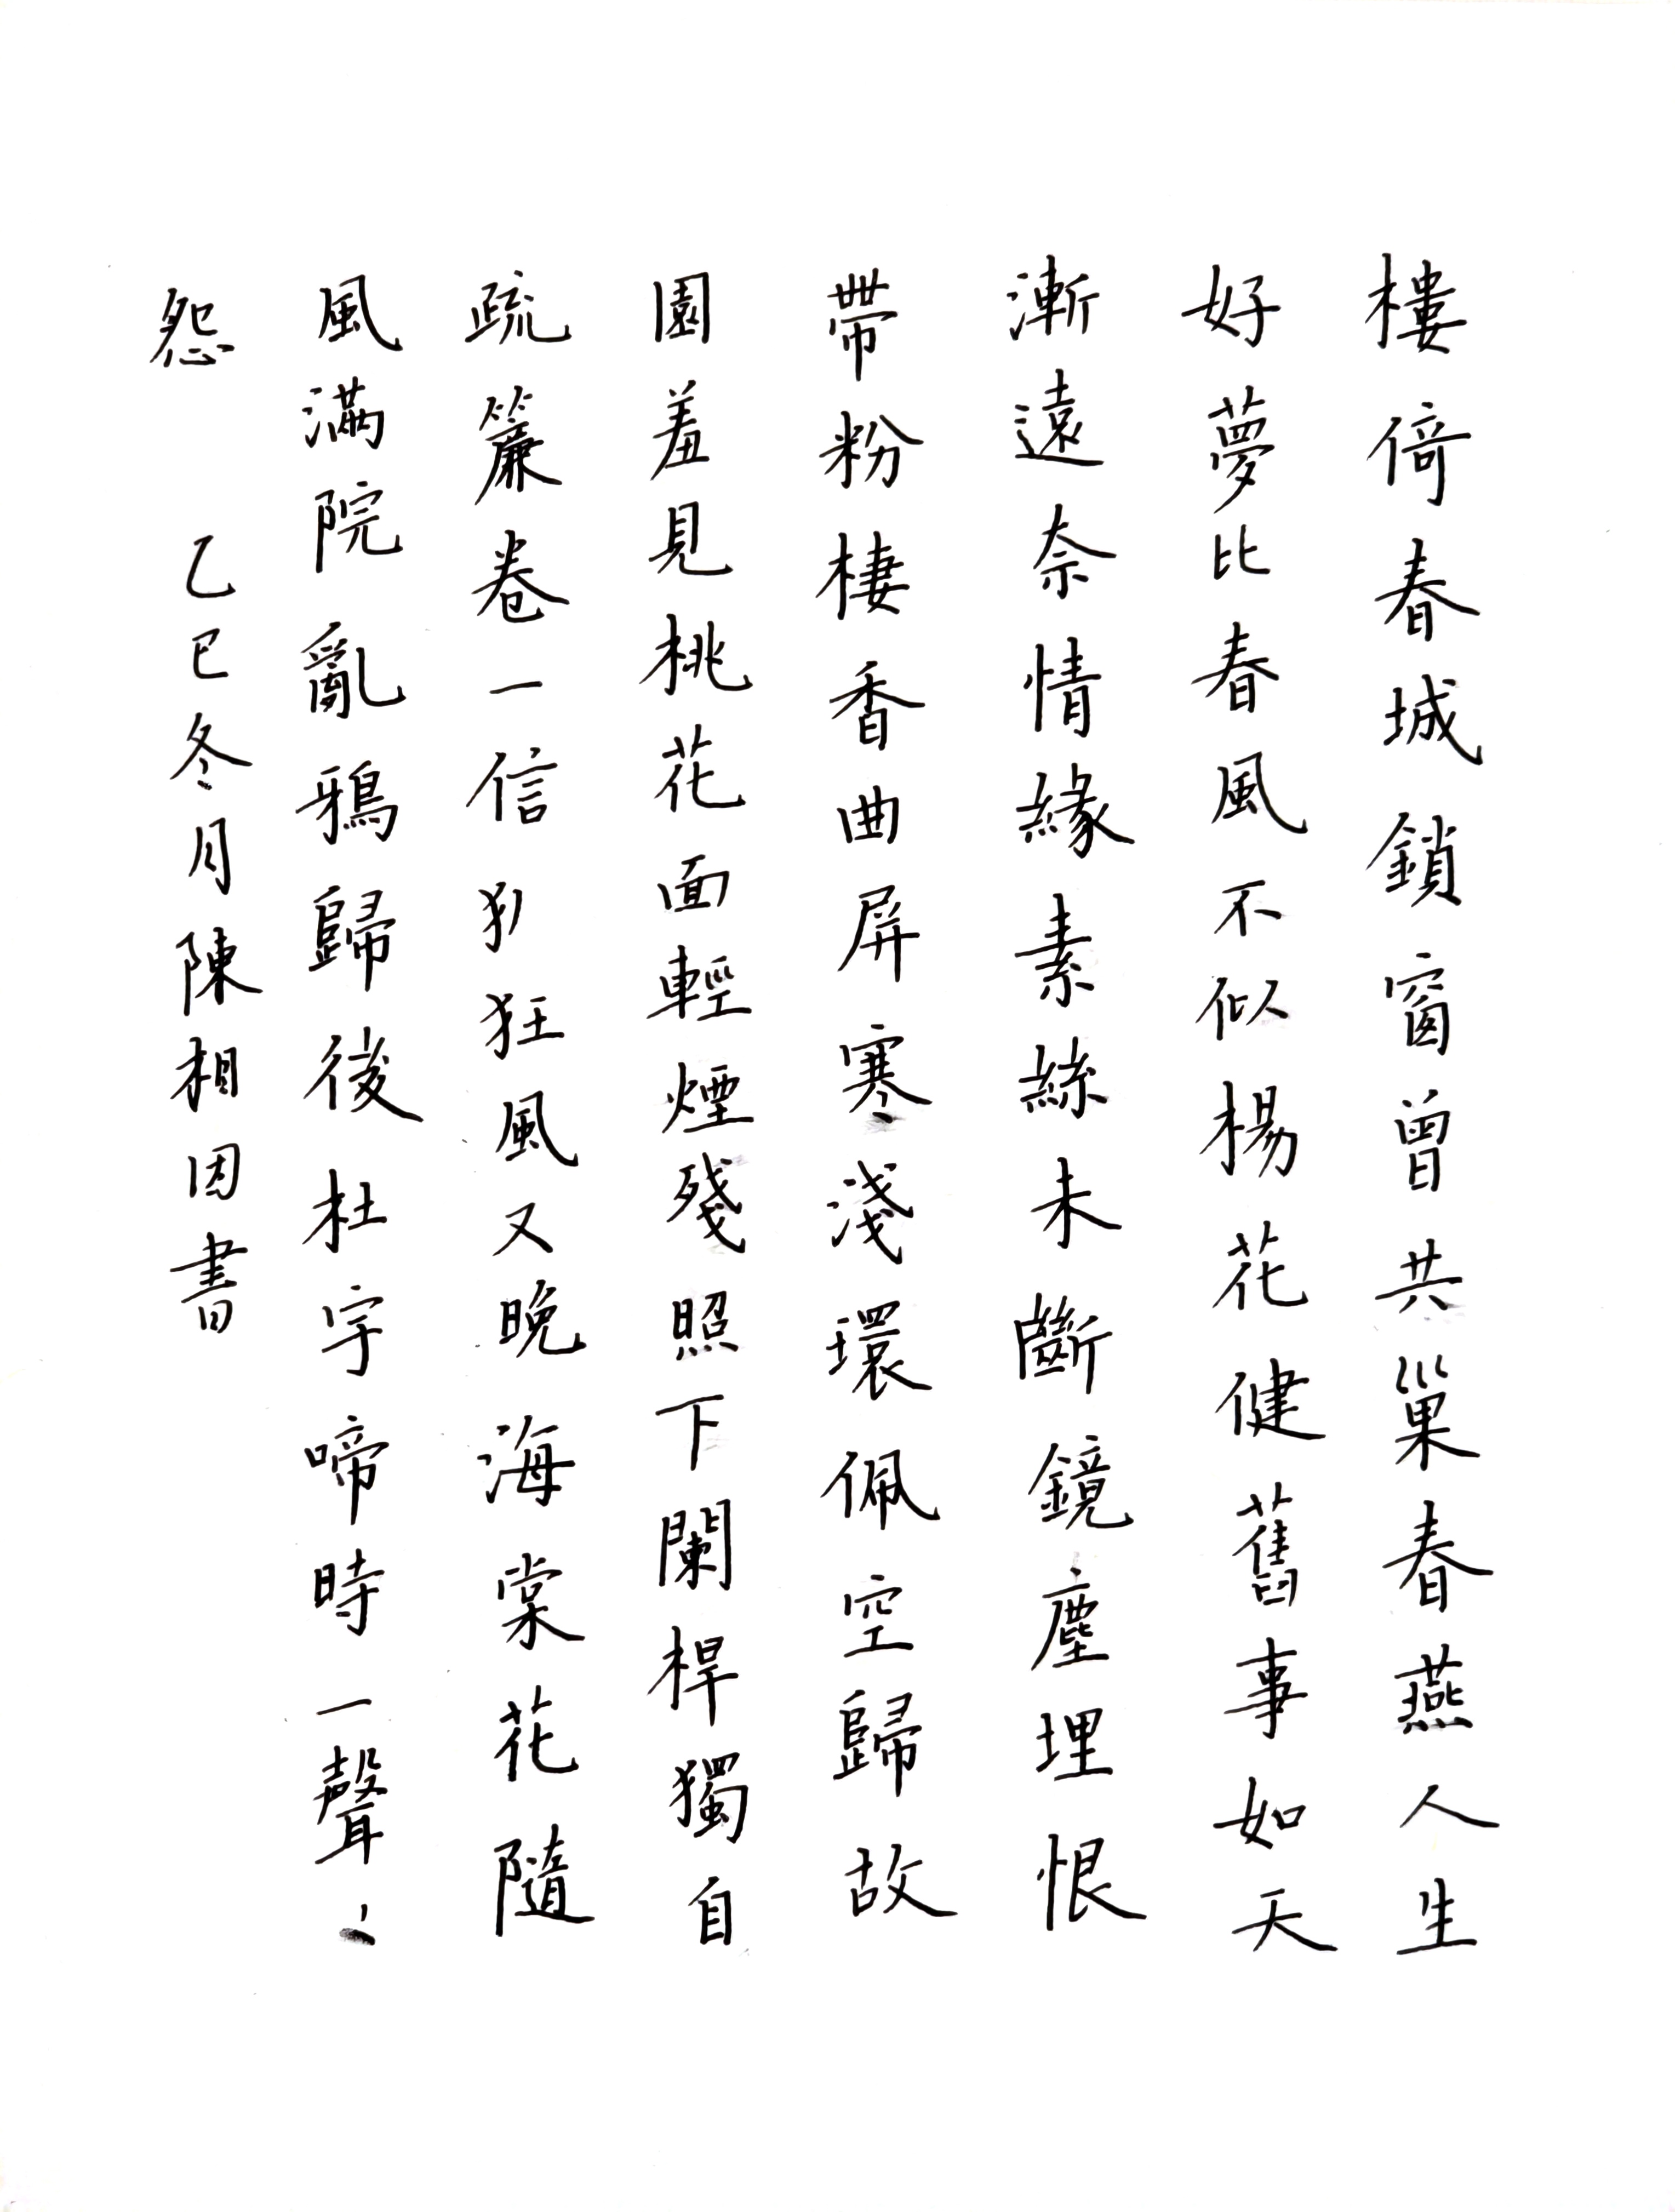 樓倚春城鎖窗曾共巢春燕人生
好夢比春風不似楊花健舊事如天
漸遠奈情緣素絲未斷鏡塵埋恨
帶粉棲香曲屏寒淺環佩空歸故
園羞見桃花面輕煙殘照下闌桿獨自
疏簾卷一信狂風又晚海棠花隨
風滿院亂鴉歸後杜宇啼時一聲〻
怨 乙巳冬月陳相因書